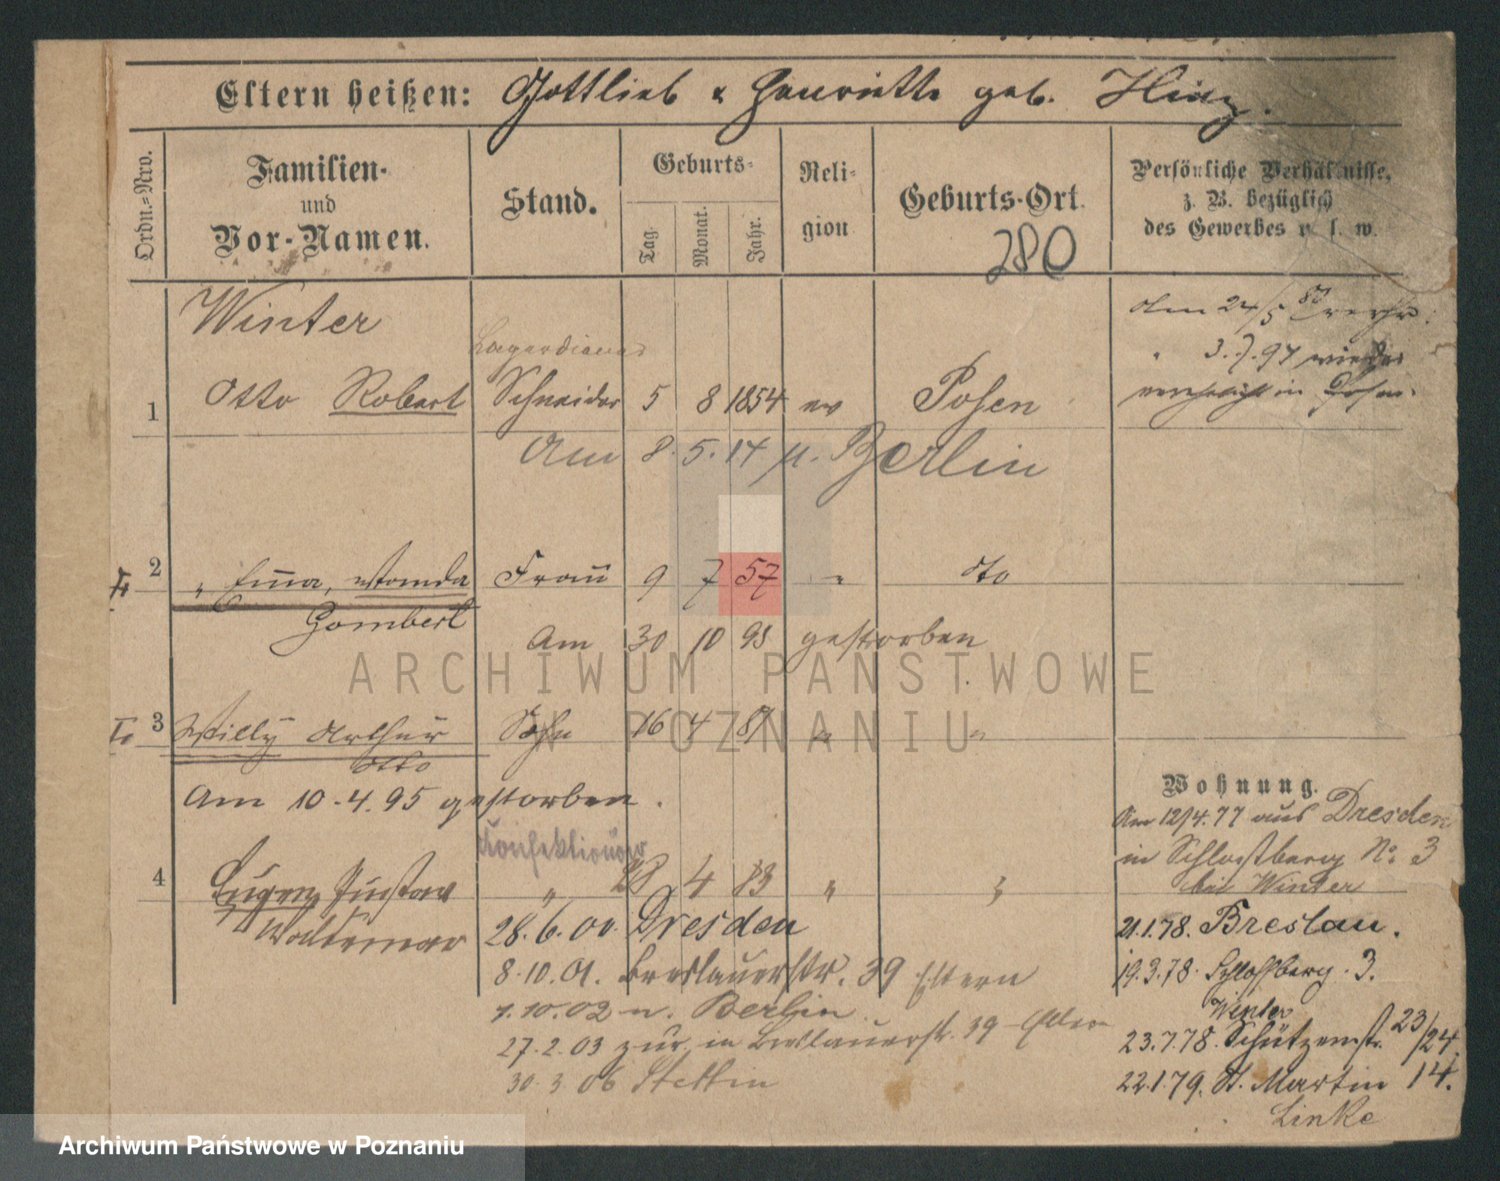 Eltern heißen: Gottlieb & Henriette geb. Hinz.
Ordn.-Nro.
Familien- und Vor-Namen.
Stand.
Geburts-
Tag. Monat. Jahr.
Reli-
gion
Geburts-Ort.
280
Persönliche Verhältnisse,
z. B. bezüglich
des Gewerbes u. s. w.
Winter
den 24/5 80
Lagerdiener
3.7.97 wieder
1 Otto Robert Schneider 5 8 1854 ev Posen
verheiratet in Posen.
Am 8.5.14 n. Berlin
2 " Emma, Wanda Frau 9 7 57 " do
Gombert
Am 30 10 98 gestorben
3 Willy Arthur Sohn 16 4 81 " "
Otto
Am 10.4.95 gestorben.
Konfektionär
4 Eugen Gustav " 28 4 83 " "
Woldemar
28.6.00. Dresden
8.10.01. Breslauerstr. 39 Eltern
1.10.02 n. Berlin.
27.2.03 zur. in Breslauerstr. 39 Eltern
30.3.06 Stettin
Wohnung.
Am 12/4.77 aus Dresden
in Schloßberg No 3
bei Winter
21.1.78. Breslau.
19.3.78. Schloßberg. 3.
Winter
23.7.78. Schützenstr. 23/24.
22.1.79. St. Martin 14.
Linke
ARCHIWUM PAŃSTWOWE
W POZNANIU
Archiwum Państwowe w Poznaniu